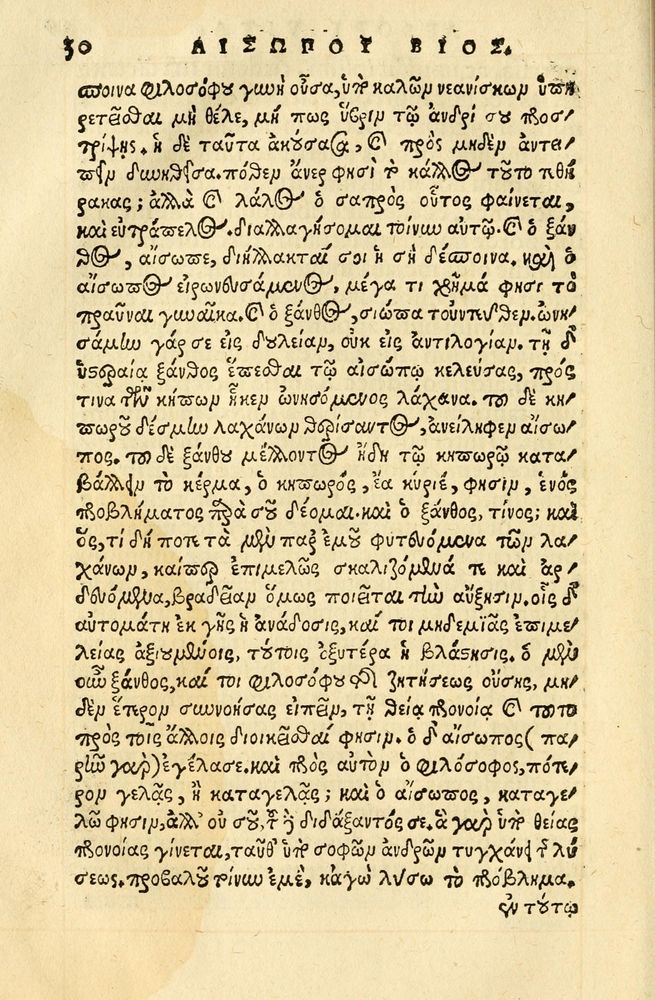 30 ΑΙΣΩΠΟΥ ΒΙΟΣ.
σποινα φιλοσόφου γυνὴ οὖσα, ὑπὸ καλῶν νεανίσκων ὑπη
ρετεῖσθαι μὴ θέλε, μή πως ὕβριν τῷ ἀνδρί σου προσ
τρίψῃς. ἡ δὲ ταῦτα ἀκούσασα, καὶ πρὸς μηδὲν ἀντει
πεῖν δυνηθεῖσα. πόθεν ἄνερ φησὶ τὸ κάλλος τοῦτο τεθή
ρακας; ἀλλὰ καὶ λάλος ὁ σαπρὸς οὗτος φαίνεται,
καὶ εὐτράπελος. διαλλαγήσομαι τοίνυν αὐτῷ. καὶ ὁ ξάν
θος, αἴσωπε, διήλλακταί σοι ἡ σὴ δέσποινα. καὶ ὁ
αἴσωπος εἰρωνευσάμενος, μέγα τι χρῆμά φησι τὸ
πραῧναι γυναῖκα. καὶ ὁ ξάνθος, σιώπα τοὐντεῦθεν. ὠνη
σάμην γάρ σε εἰς δουλείαν, οὐκ εἰς ἀντιλογίαν. τῇ δ'
ὑστεραίᾳ ξάνθος ἕπεσθαι τῷ αἰσώπῳ κελεύσας, πρός
τινα τῶν κήπων ἧκεν ὠνησόμενος λάχανα. τοῦ δὲ κη
πωροῦ δέσμην λαχάνων θερίσαντος, ἀνείληφεν αἴσω
πος. τοῦ δὲ ξάνθου μέλλοντος ἤδη τῷ κηπωρῷ κατα
βάλλειν τὸ κέρμα, ὁ κηπωρός, ἔα κύριέ, φησιν, ἑνὸς
προβλήματος παρὰ σοῦ δέομαι. καὶ ὁ ξάνθος, τίνος; καὶ
ὅς, τί δήποτε τὰ μὲν παρ' ἐμοῦ φυτευόμενα τῶν λα
χάνων, καίπερ ἐπιμελῶς σκαλιζόμενά τε καὶ ἀρ
δευόμενα, βραδεῖαν ὅμως ποιεῖται τὴν αὔξησιν. οἷς δ'
αὐτομάτη ἐκ γῆς ἡ ἀνάδοσις, καί τοι μηδεμιᾶς ἐπιμε
λείας ἀξιουμένοις, τούτοις ὀξυτέρα ἡ βλάστησις. ὁ μὲν
οὖν ξάνθος, καί τοι φιλοσόφου τῆς ζητήσεως οὔσης, μη
δὲν ἕτερον συνοήσας εἰπεῖν, τῇ θείᾳ προνοίᾳ καὶ τοῦτο
πρὸς τοῖς ἄλλοις διοικεῖσθαί φησιν. ὁ δ' αἴσωπος (πα
ρῆν γὰρ) ἐγέλασε. καὶ πρὸς αὐτὸν ὁ φιλόσοφος, πότε
ρον γελᾷς, ἢ καταγελᾷς; καὶ ὁ αἴσωπος, καταγε
λῶ φησιν, ἀλλ' οὐ σοῦ, τοῦ δὲ διδάξαντός σε. ἃ γὰρ ὑπὸ θείας
προνοίας γίνεται, ταῦθ' ὑπὸ σοφῶν ἀνδρῶν τυγχάνει τῆς λύ
σεως. προβαλοῦ τοίνυν ἐμέ, κἀγὼ λύσω τὸ πρόβλημα.
ἐν τούτῳ